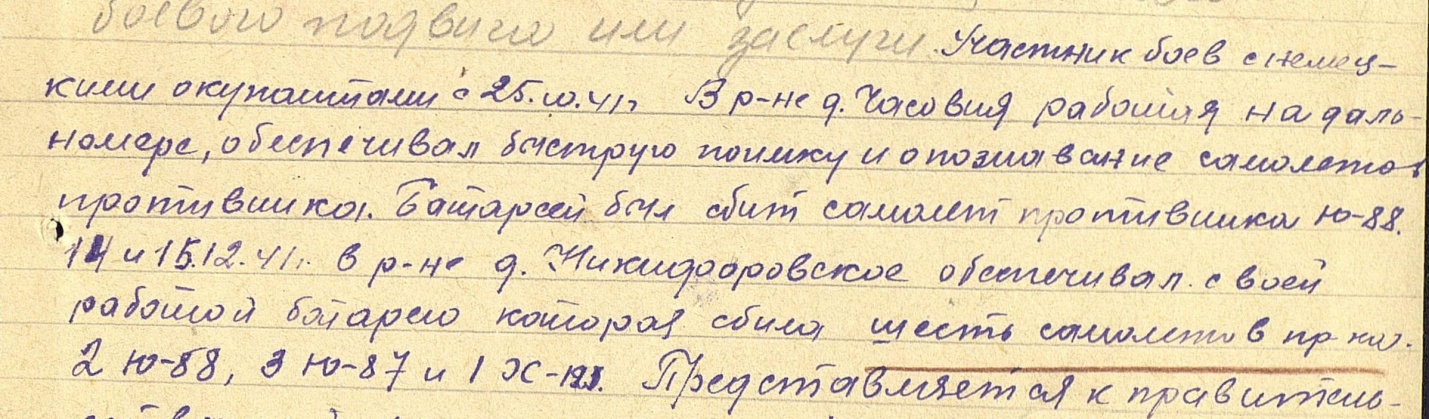 боевого подвига или заслуги. Участник боев с немец-
кими окупантами с 25.10.41г. В р-не д. Часовня работая на даль-
номере, обеспечивал быструю поимку и опознавание самолетов
противника. Батареей был сбит самолет противника Ю-88.
14 и 15.12.41г. в р-не д. Никифоровское обеспечивал своей
работой батарею которая сбила шесть самолетов пр-ка.
2 Ю-88, 3 Ю-87 и 1 Х-
Представляется к правитель-